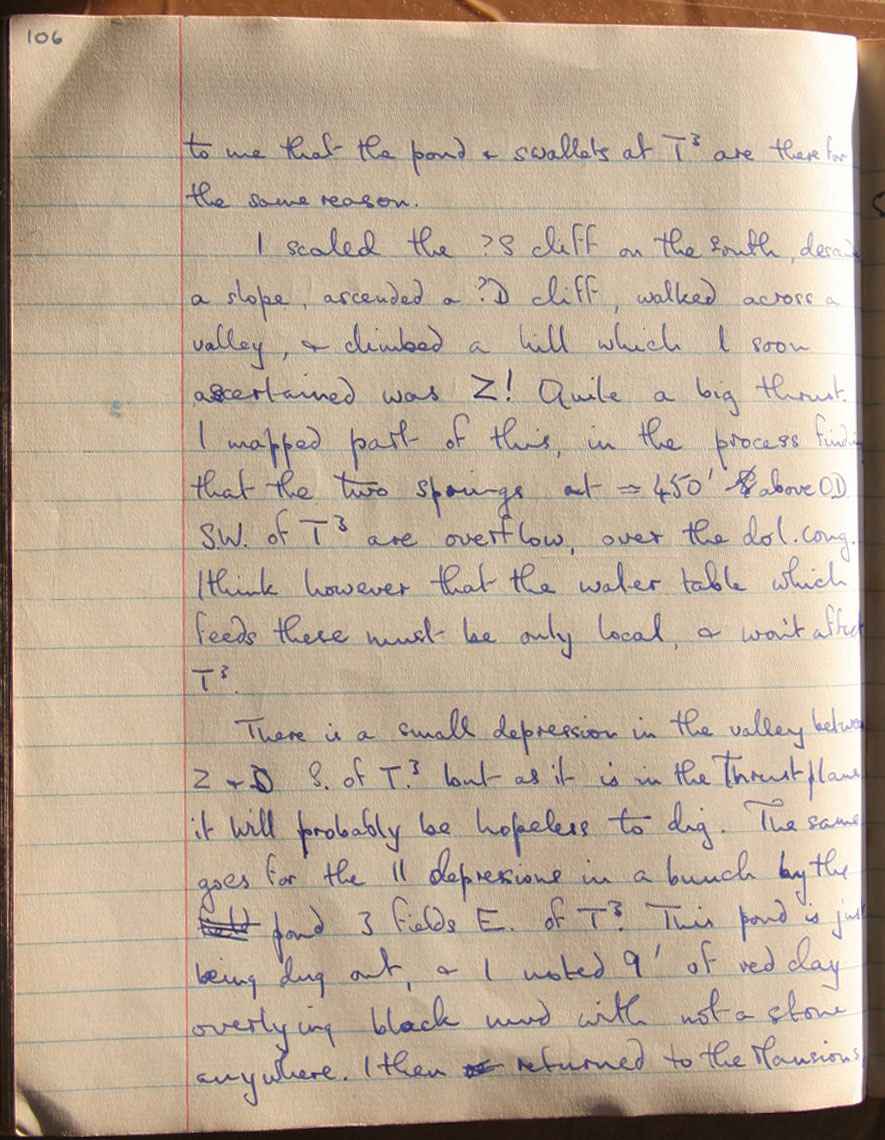 106
to me that the pond & swallets at T³ are there for
the same reason.
I scaled the ?S cliff on the south,
a slope, ascended a ?D cliff, walked across a
valley, & climbed a hill which I soon
ascertained was Z! Quite a big thrust.
I mapped part of this, in the process
that the two springs at ≃ 450' above OD
SW. of T³ are overflow, over the dol. cong.
I think however that the water table which
feeds these must be only local, & won't affect
T³.
There is a small depression in the valley
Z & D S. of T.³ but as it is in the Thrust plane
it will probably be hopeless to dig. The same
goes for the 11 depressions in a bunch by the
pond 3 fields E. of T³. This pond is just
being dug out, & I noted 9' of red clay
overlying black mud with not a stone
anywhere. I then returned to the Mansions